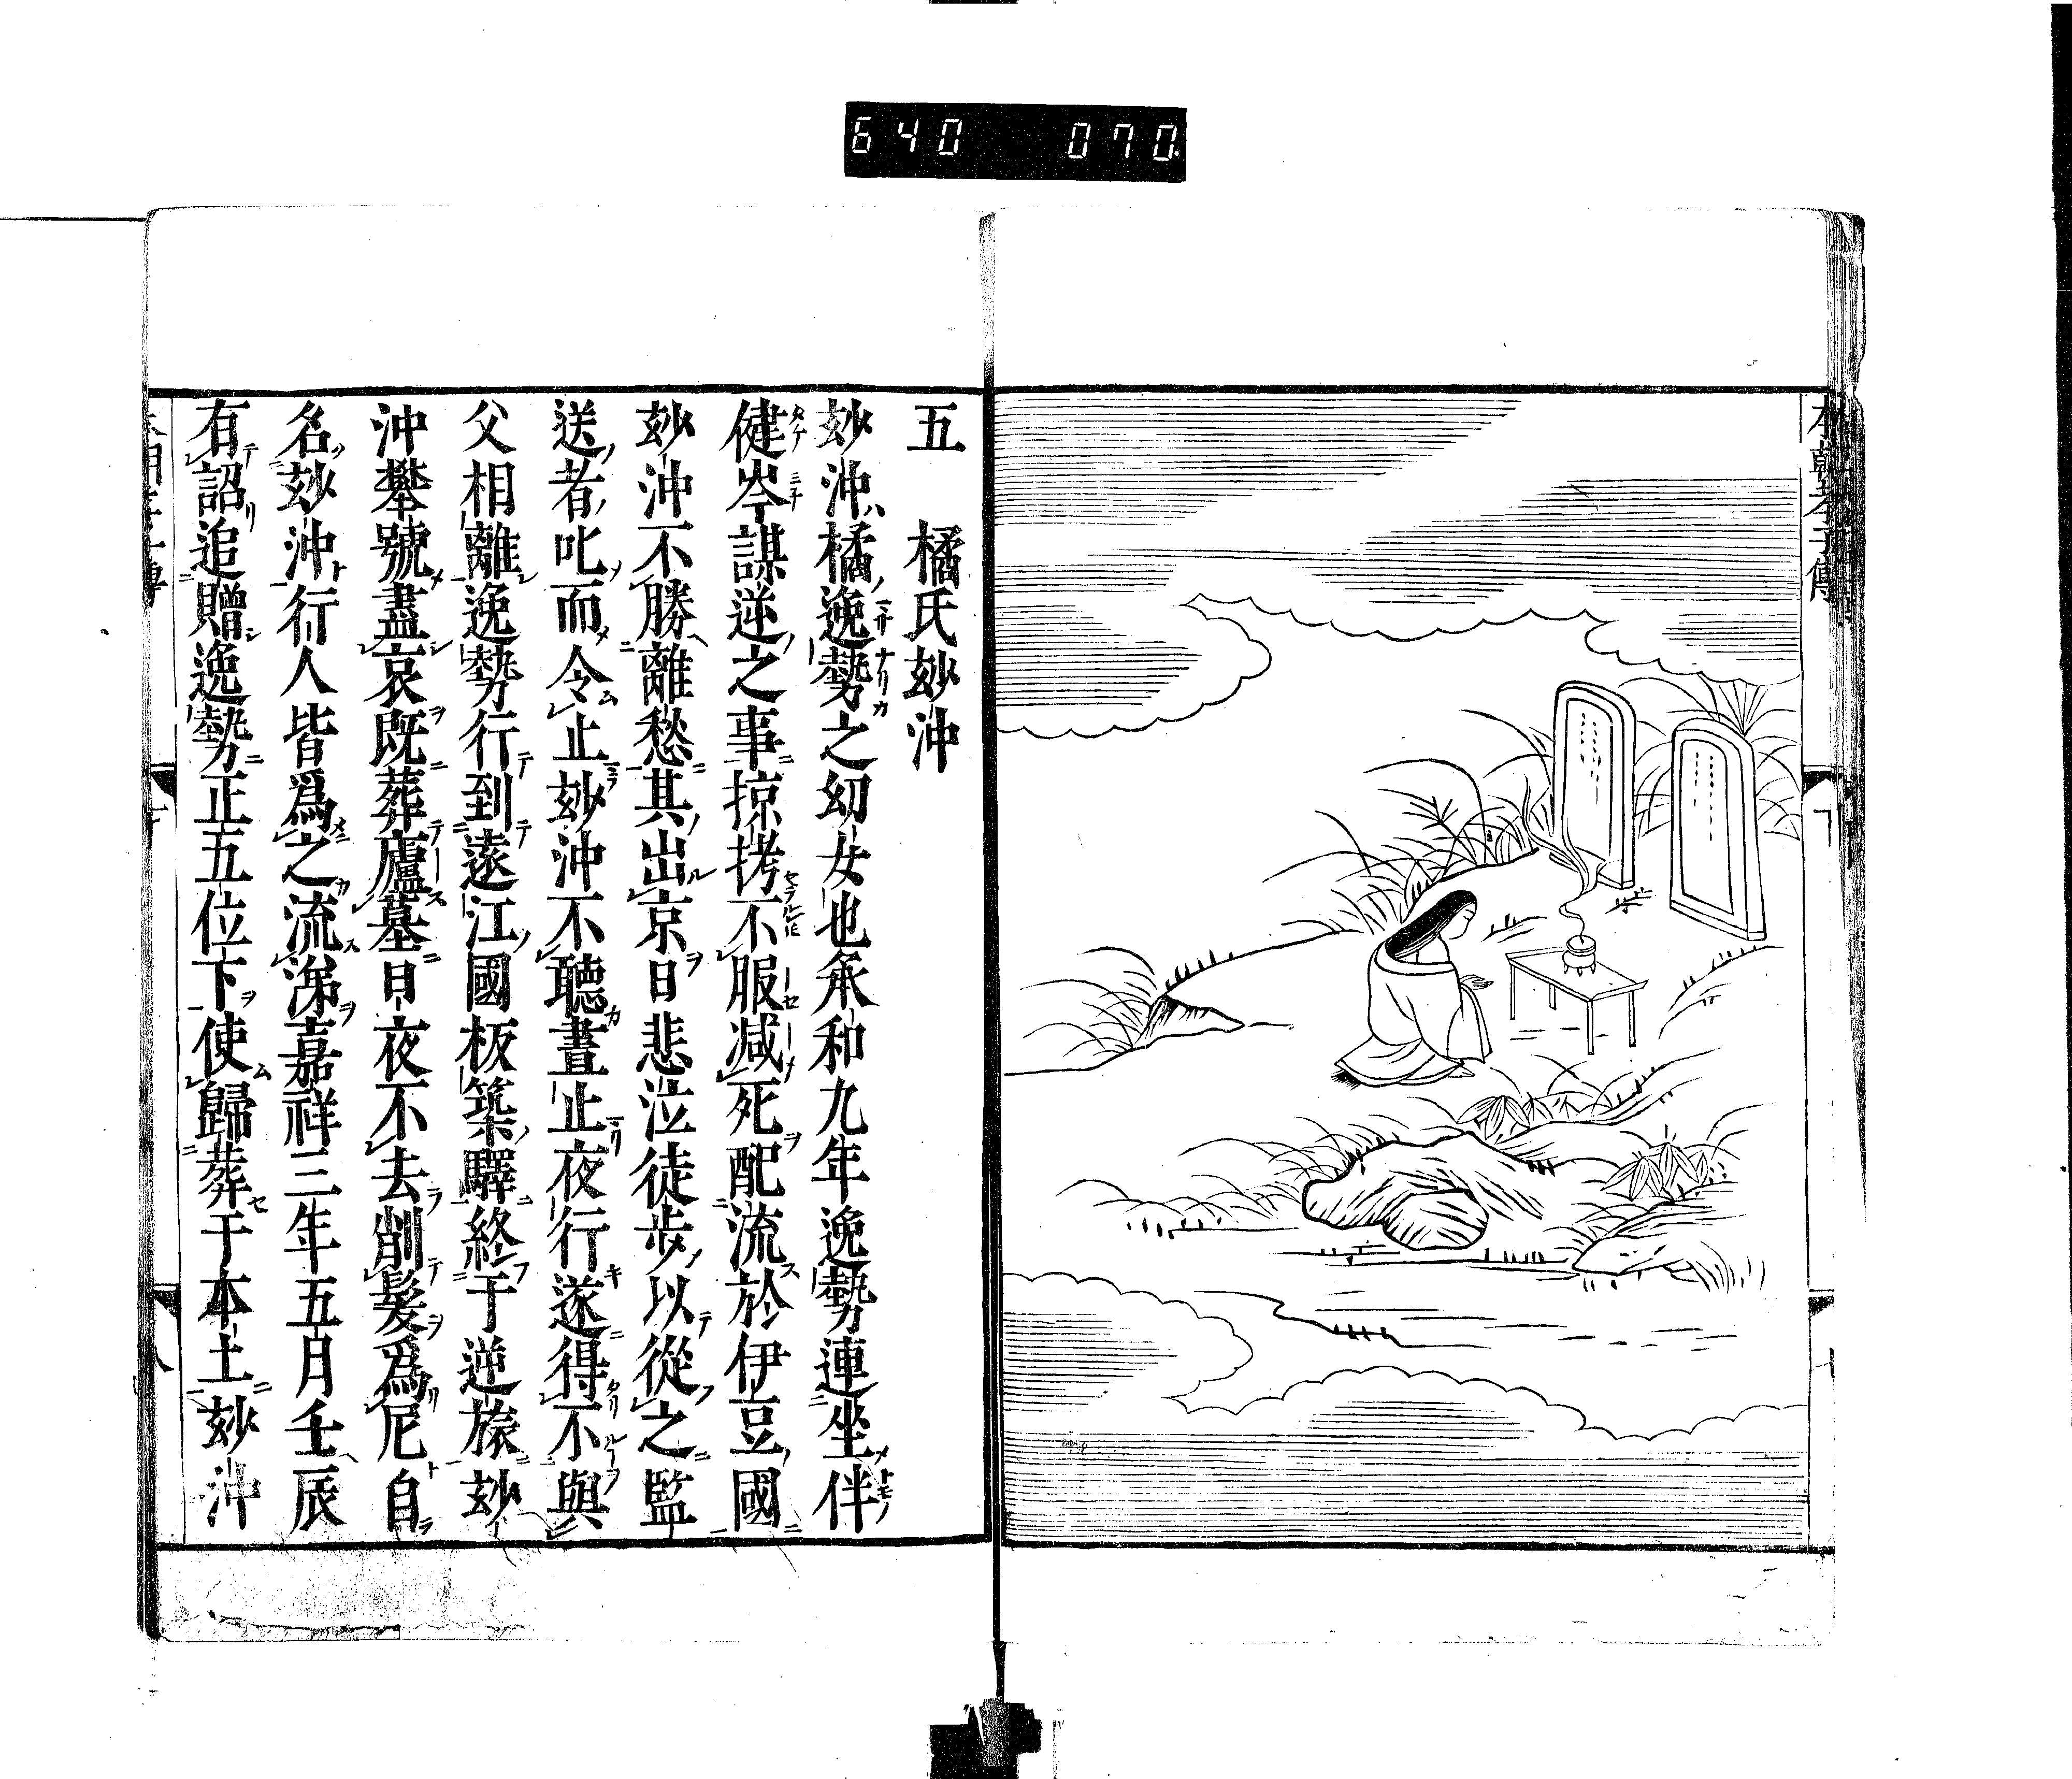 640 070
本朝孝子傳
五 橘氏妙沖
妙沖橘逸勢之幼女也承和九年逸勢連坐伴
健岑謀逆之事掠拷不服減死配流於伊豆國
妙沖不勝離愁其出京日悲泣徒步以從之監
送者叱而令止妙沖不聽晝止夜行遂得不與
父相離逸勢行到遠江國板築驛終于逆旅妙
沖攀號盡哀既葬廬墓日夜不去削髮爲尼自
名妙沖行人皆爲之流涕嘉祥三年五月壬辰
有詔追贈逸勢正五位下使歸葬于本土妙沖